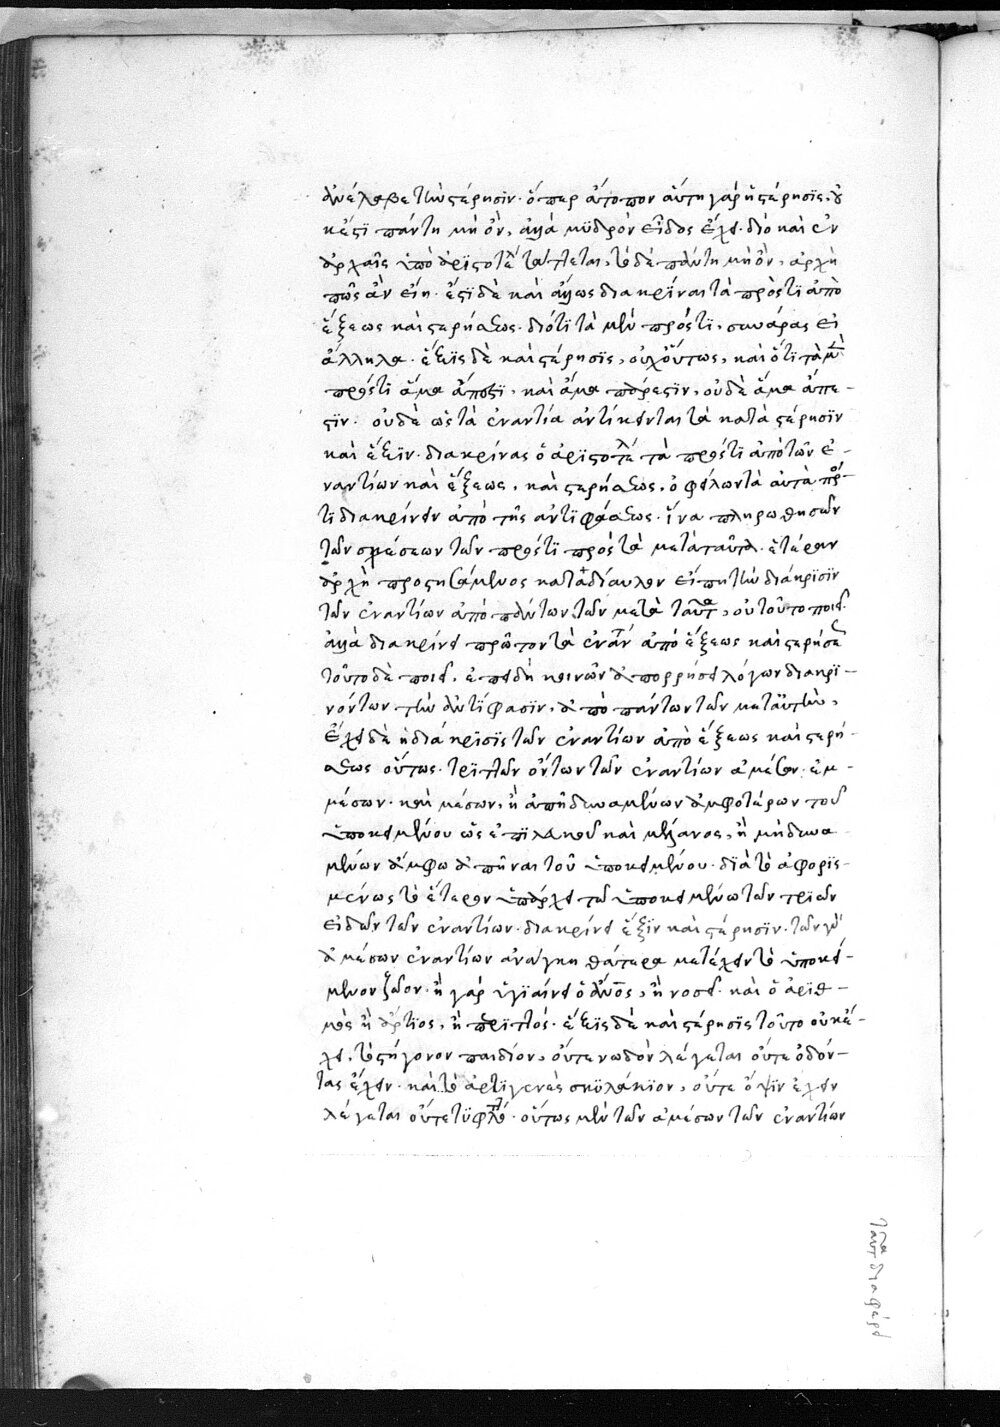 ἀνέλαβε τὴν στέρησιν· ὅπερ ἄτοπον αὕτη γὰρ ἡ στέρησις, οὐ
κέστι πάντη μὴ ὄν, ἀλλὰ μυδρὸν εἶδος ἔχει· διὸ καὶ ἐν
ἀρχαῖς ὑπὸ ἀριστοτέλ τάττεται, τὸ δὲ πάντη μὴ ὄν, ἀρχὴ
πῶς ἂν εἴη· ἔστι δὲ καὶ ἄλλως διακρῖναι τὰ πρός τι ἀπὸ
ἕξεως καὶ στερήσεως· διότι τὰ μὲν πρός τι, συνάρας εἰ
ἄλληλα· ἕξις δὲ καὶ στέρησις, οὐχ οὕτως, καὶ ὅτι τὰ μὲν
πρός τι ἅμα ἄπεστι, καὶ ἅμα πάρεστιν, οὐδὲ ἅμα ἄπε-
στιν· οὐδὲ ὡς τὰ ἐναντία ἀντίκεινται τὰ κατὰ στέρησιν
καὶ ἕξιν· διακρίνας ὁ ἀριστοτέλ τὰ πρός τι ἀπὸ τῶν ἐ-
ναντίων καὶ ἕξεως, καὶ στερήσεως, ὀφείλων τὰ αὐτὰ πρός
τι διακρίνειν ἀπὸ τῆς ἀντιφάσεως· ἵνα πληρωθησῶν
τῶν σχέσεων τῶν πρός τι πρὸς τὰ μετὰ ταῦτα. ἑτέραν
ἀρχὴ προστησάμενος κατὰ δίαυλον εἴπῃ τὴν διάκρισιν
τῶν ἐναντίων ἀπὸ πάντων τῶν μετὰ ταῦτα, οὐ τοῦτο ποιεῖ.
ἀλλὰ διακρίνει πρῶτον τὰ ἐναντία ἀπὸ ἕξεως καὶ στερήσεως
τοῦτο δὲ ποιεῖ, ἐπειδὴ κοινῶν ἀπορρήσει λόγων διακρι-
νόντων τὴν ἀντίφασιν, ἀπὸ πάντων τῶν μετ' αὐτὴν,
ἔχει δὲ ἡ διάκρισις τῶν ἐναντίων ἀπὸ ἕξεως καὶ στερή-
σεως οὕτως· τριττῶν ὄντων τῶν ἐναντίων ἀμέσων. ἐμ-
μέσων· καὶ μέσων, ἢ ἀπῇ δυναμένων ἀμφοτέρων τοῦ
ὑποκειμένου ὡς ἐπὶ λευκοῦ καὶ μέλανος, ἢ μὴ δυνα-
μένων ἄμφω ἀπῆναι τοῦ ὑποκειμένου· διὰ τὸ ἀφορισ-
μένως τὸ ἕτερον ὑπάρχει τῶ ὑποκειμένω τῶν τριῶν
εἰδῶν τῶν ἐναντίων· διακρίνει ἕξιν καὶ στέρησιν· τῶν γὰρ
ἀμέσων ἐναντίων ἀνάγκη θάτερα μετέχειν τὸ ὑποκεί-
μενον ἐξ ὧν· ἢ γὰρ ὑγιαίνει ὁ ἄνος, ἢ νοσεῖ· καὶ ὁ ἀριθ-
μὸς ἢ ἄρτιος, ἢ περιττός· ἕξις δὲ καὶ στέρησις τοῦτο οὐκ ἔ-
χει, τὸ στήγονον παιδίον, οὔτε νωδὸν λέγεται οὔτε ὀδόν-
τας ἔχειν· καὶ τὸ ἀρτιγενὲς σκυλάκιον, οὔτε ὄψιν ἔχειν
λέγεται οὔτε τυφλό· οὕτως μὲν τῶν ἀμέσων τῶν ἐναντίων
ταῦτα διαφέρει